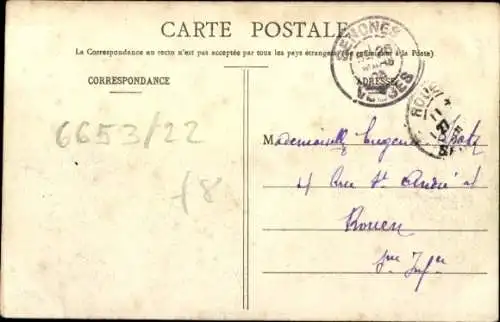 CARTE POSTALE
(La Correspondance au recto n'est pas acceptée par tous les pays étrangers (se renseigner à la Poste)
CORRESPONDANCE
ADRESSE
SENONES
VOSGES
ROUEN
6653/22
f8
Mademoiselle Eugénie
4 Rue St André
Rouen
Sne Infre